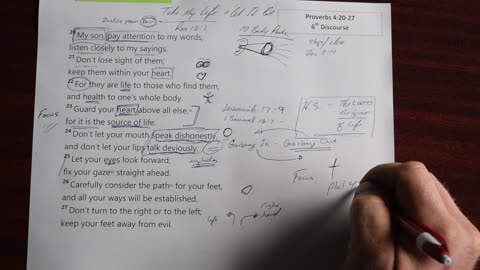 Take My Life & Let It Be
Proverbs 4:20-27
6th Discourse
20 My son, pay attention to my words;
listen closely to my sayings.
21 Don't lose sight of them;
keep them within your heart.
22 For they are life to those who find them,
and health to one's whole body.
23 Guard your heart above all else,
for it is the source of life.
24 Don't let your mouth speak dishonestly,
and don't let your lips talk deviously.
25 Let your eyes look forward;
fix your gaze straight ahead.
26 Carefully consider the path for your feet,
and all your ways will be established.
27 Don't turn to the right or to the left;
keep your feet away from evil.
Focus
Rom 12:1
Jeremiah 17:9
1 Samuel 16:7
Garbage In - Garbage Out
Focus
Phil 4
right
hand
of Life